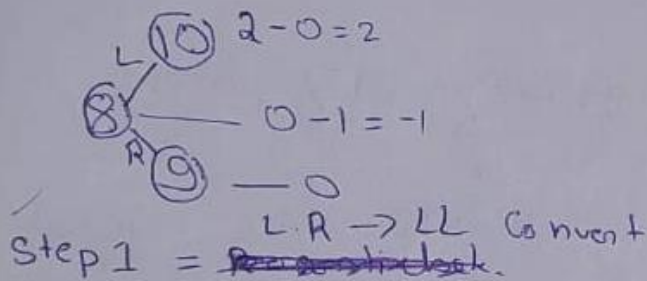 L 10 2-0=2
8 0-1=-1
R 9 — 0
L.R → LL Convert
Step 1 =